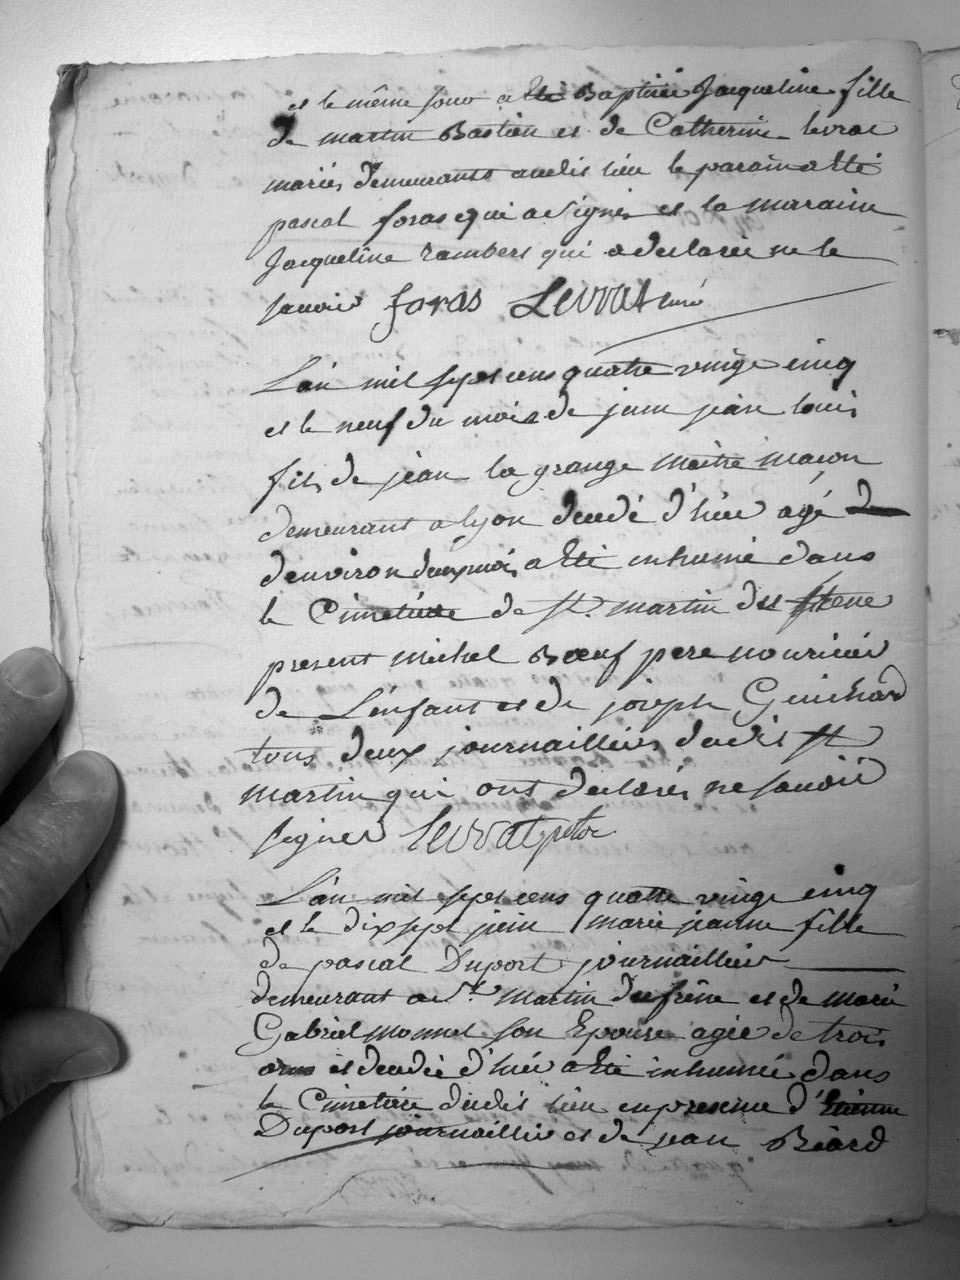 et le même jour a été Baptisée Jacqueline fille
de martin Bastien et de Catherine levrat
mariés demeurants audit lieu le parain a été
pascal foras qui a signés et la maraine
Jacqueline rambert qui a declarée ne le
savoir foras Levrat curé
L'an mil sept cens quatre vingt cinq
et le neuf du mois de juin jean louis
fils de jean la grange maitre maçon
demeurant a lyon decedé d'hier agé de
d'environ deux mois a été inhumé dans
le Cimetiere de st. martin du frene
present michel Bœuf pere nouricier
de L'enfant et de joseph Guichard
tous deux journailliers dudit st
martin qui ont declarés ne savoir
signer Levrat
L'an mil sept cens quatre vingt cinq
et le dix sept juin marie jeanne fille
de pascal Duport journaillier
demeurant a St martin du frêne et de marie
Gabriel monnet son Epouse agée de trois
ans et decedée d'hier a été inhumée dans
le Cimetiére dudit lieu en presence d'Etienne
Duport journaillier et de jean Béard